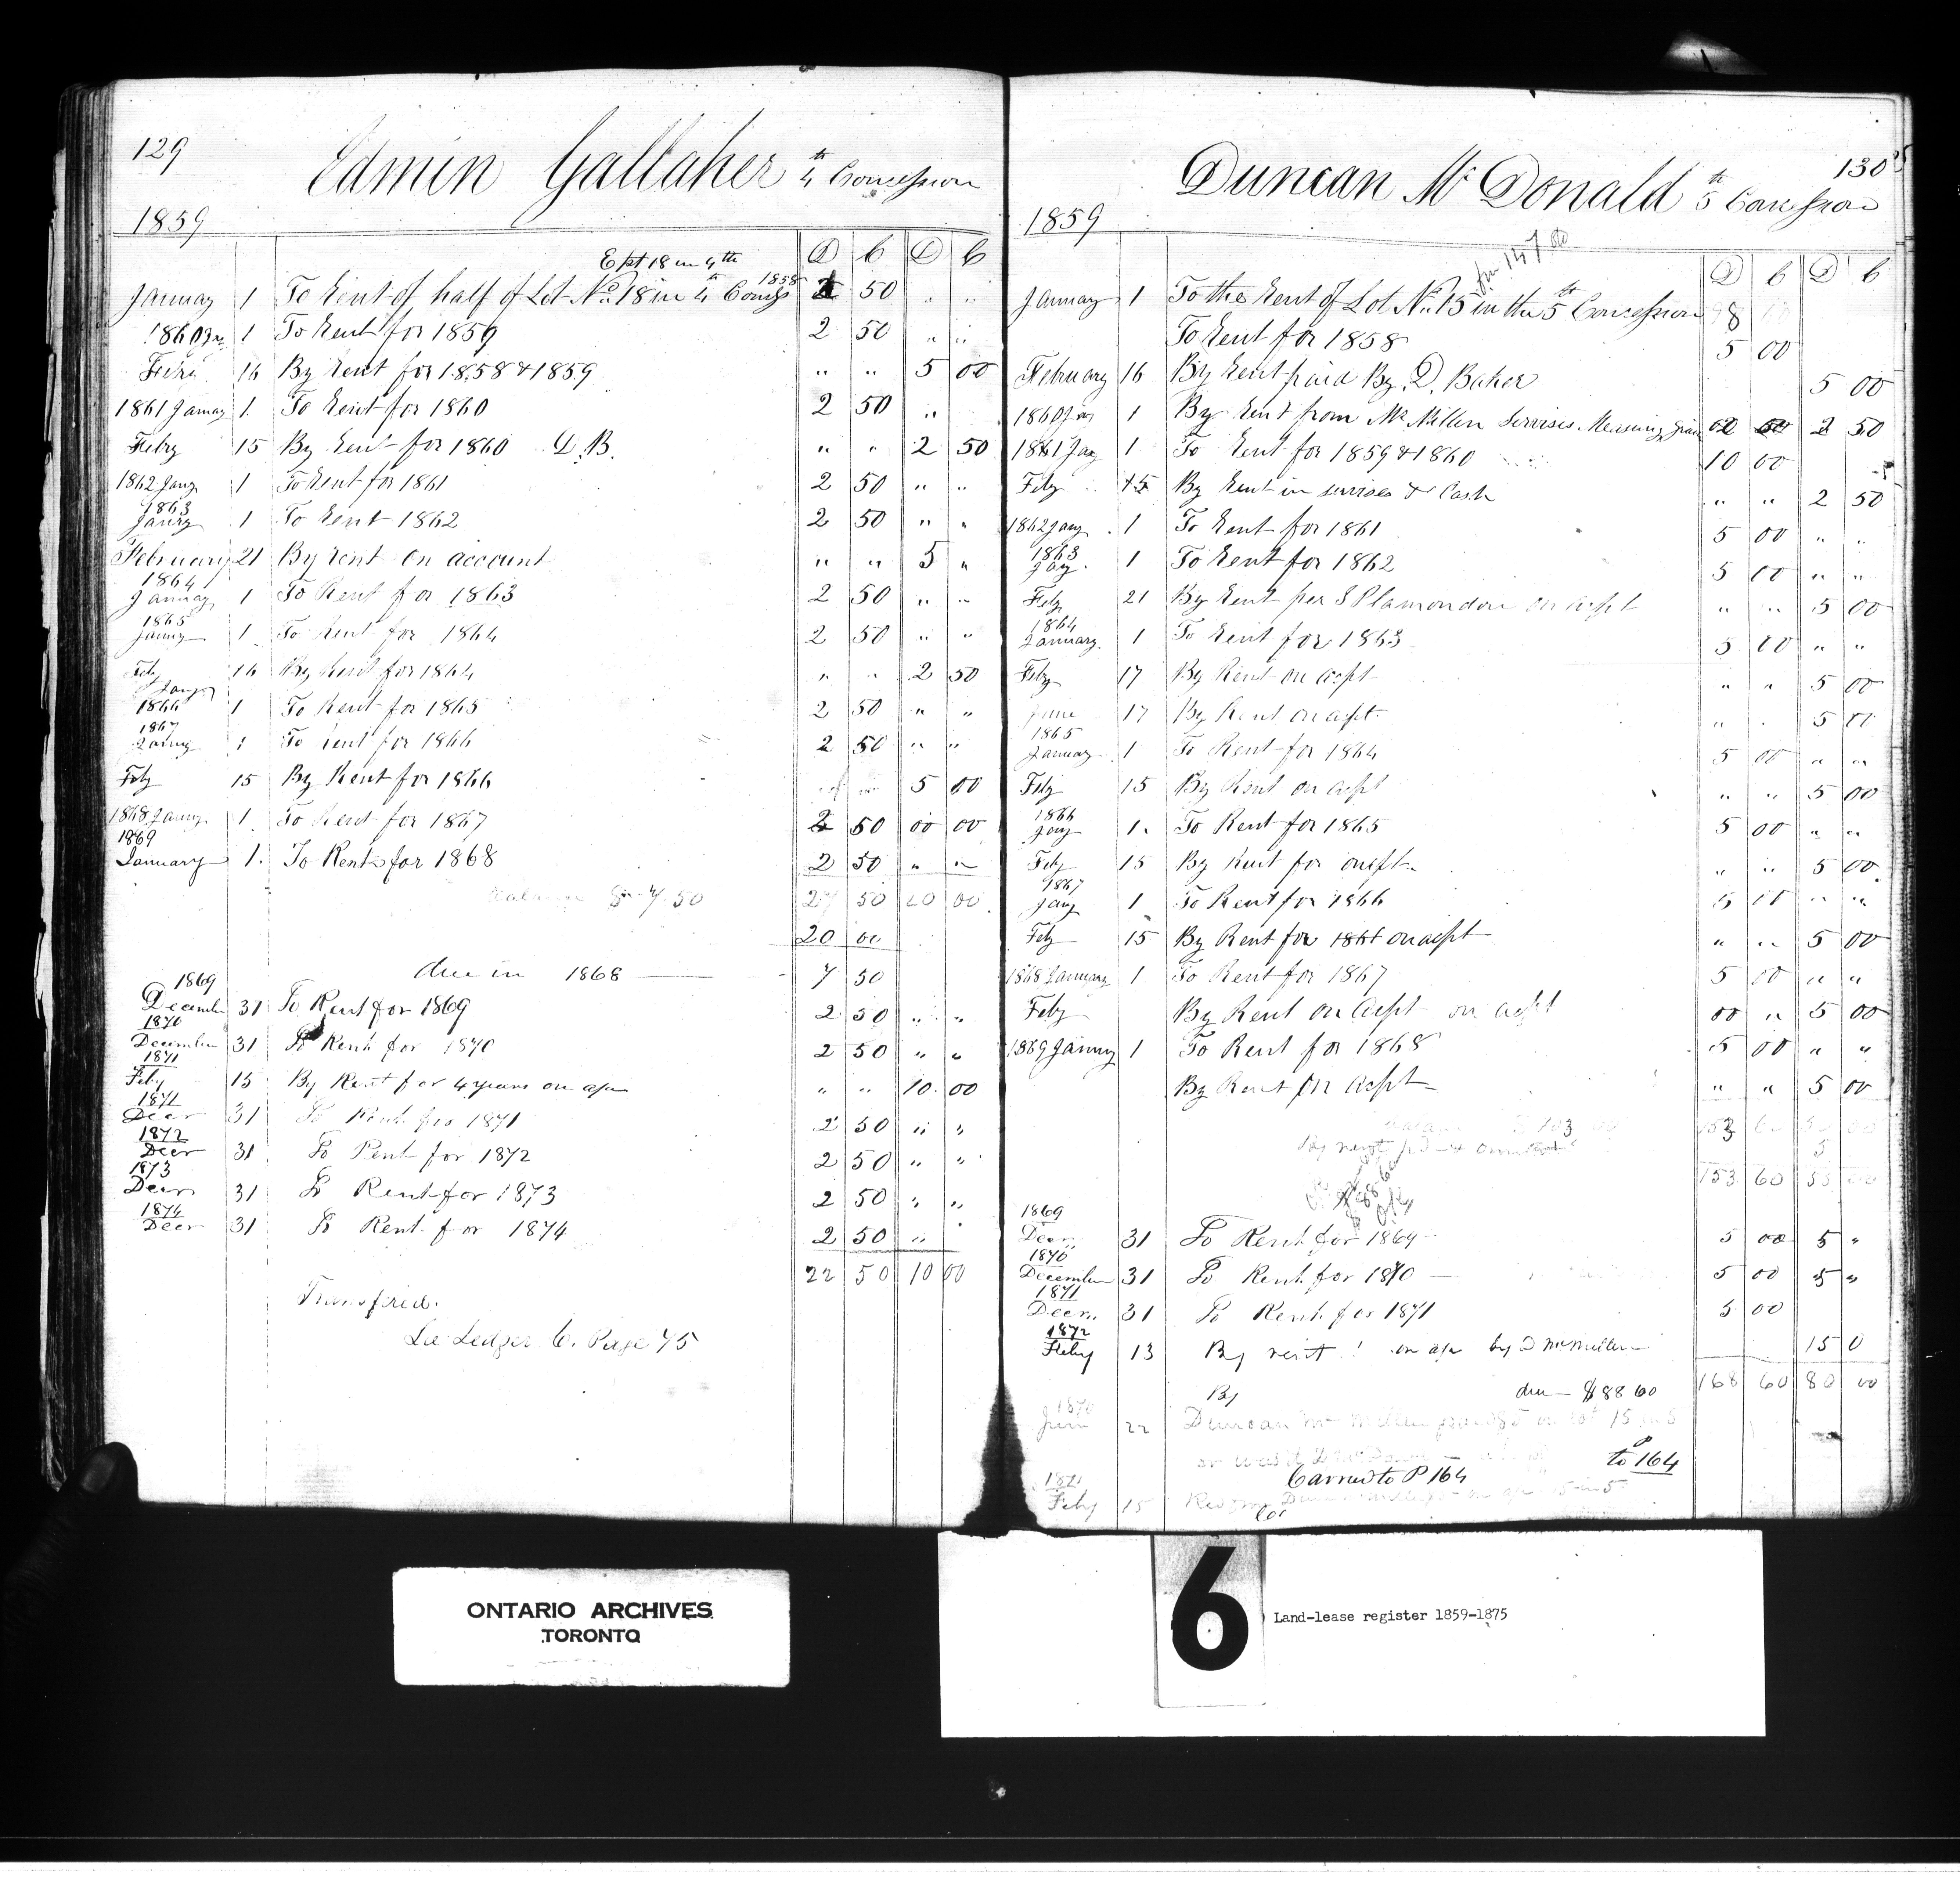 129
Edmin Gallaher 4th Concession
1859
D C D C
E pt 18 in 4th
January 1 To Rent of half of Lot No. 18 in 4th Conss 1858 2 50 " "
1860 Jny 1 To Rent for 1859 2 50 " "
16 By Rent for 1858 & 1859 " " 5 00
1861 January 1 To Rent for 1860 2 50 "
Feby 15 By Rent for 1860 D. B. " " 2 50
1862 Jany 1 To Rent for 1861 2 50 " "
1863
Janry 1 To Rent 1862 2 50 " "
February 21 By rent on account " " 5 "
1864
January 1 To Rent for 1863 2 50 " "
1865
Janny 1 To Rent for 1864 2 50 " "
Feby 16 By Rent for 1864 " " 2 50
Jany
1866 1 To Rent for 1865 2 50 " "
1867
Janny 1 To Rent for 1866 2 50 " "
Feby 15 By Rent for 1866 5 00
1868 Janny 1 To Rent for 1867 2 50 00 00
1869
January 1. To Rent for 1868 2 50 " "
Balance $ 7.50 27 50 20 00
20 00
due in 1868 7 50
1869
December 31 To Rent for 1869 2 50 " "
1870
December 31 To Rent for 1870 2 50 " "
1871
Feby 15 By Rent for 4 years on a/c " " 10.00
1871
Decr 31 To Rent for 1871 2 50 " "
1872
Decr 31 To Rent for 1872 2 50 " "
1873
Decr 31 To Rent for 1873 2 50 " "
1874
Decr 31 To Rent for 1874 2 50 "
22 50 10 00
Transfired.
See Ledger C. Page 75
130
Duncan Mc Donald 5th Concession
1859
D C D C
January 1 To the Rent of Lot No. 15 in the 5th Concession 98
To Rent for 1858 5 00
February 16 By Rent paid By D. Baker 5 00
1860 Jny 1 By Rent from Mc Millan Servises Measuring 2 50
1861 Jay 1 To Rent for 1859 & 1860 10 00
Feby 15 By Rent in servises & Cash " " 2 50
1862 Jany 1 To Rent for 1861 5 00 " "
1863
Jay. 1 To Rent for 1862 5 00 " "
Feby 21 By Rent per S Plamondon on acpt " " 5 00
1864
January 1 To Rent for 1863 5 00 " "
Feby 17 By Rent on acpt " " 5 00
June 17 By Rent on acpt. " 5 00
1865
January 1 To Rent for 1864 5 00 " "
Feby 15 By Rent on acpt " " 5 00
1866
Jay 1. To Rent for 1865 5 00 " "
Feby 15 By Rent for onacpt. " " 5 00.
1867
Jany 1 To Rent for 1866 5 00 " "
Feby 15 By Rent for 1866 on acpt " " 5 00
1868 January 1 To Rent for 1867 5 00 " "
Feby By Rent on Acpt on acpt 00 " 5 00
1869 Janny 1 To Rent for 1868 5 00 " "
By Rent on acpt " " 5 00
153 60
5
153 60 55
1869
Decr 31 To Rent for 1869 5 00 5 "
1870
December 31 To Rent for 1870 5 00 5 "
1871
Decr 31 To Rent for 1871 5 00
1872
Feby 13 By reint on a/c by D McMillan 15 0
168 60 80 00
By due $88 60
1870
June 22 Duncan Mc Millan
to 164
Carried to P 164
1871
Feby 15
ONTARIO ARCHIVES
TORONTO
6
Land-lease register 1859-1875